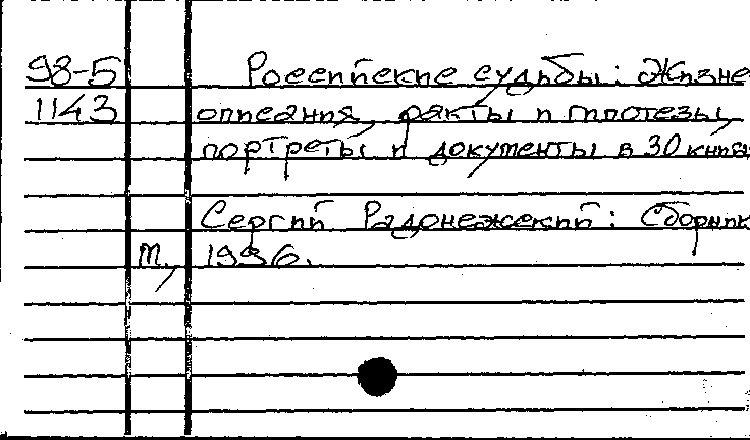 98-5 Российские судьбы: Жизне
1143 описания, факты и гипотезы,
портреты и документы в 30 книгах
Сергий Радонежский: Сборник
М., 1996.